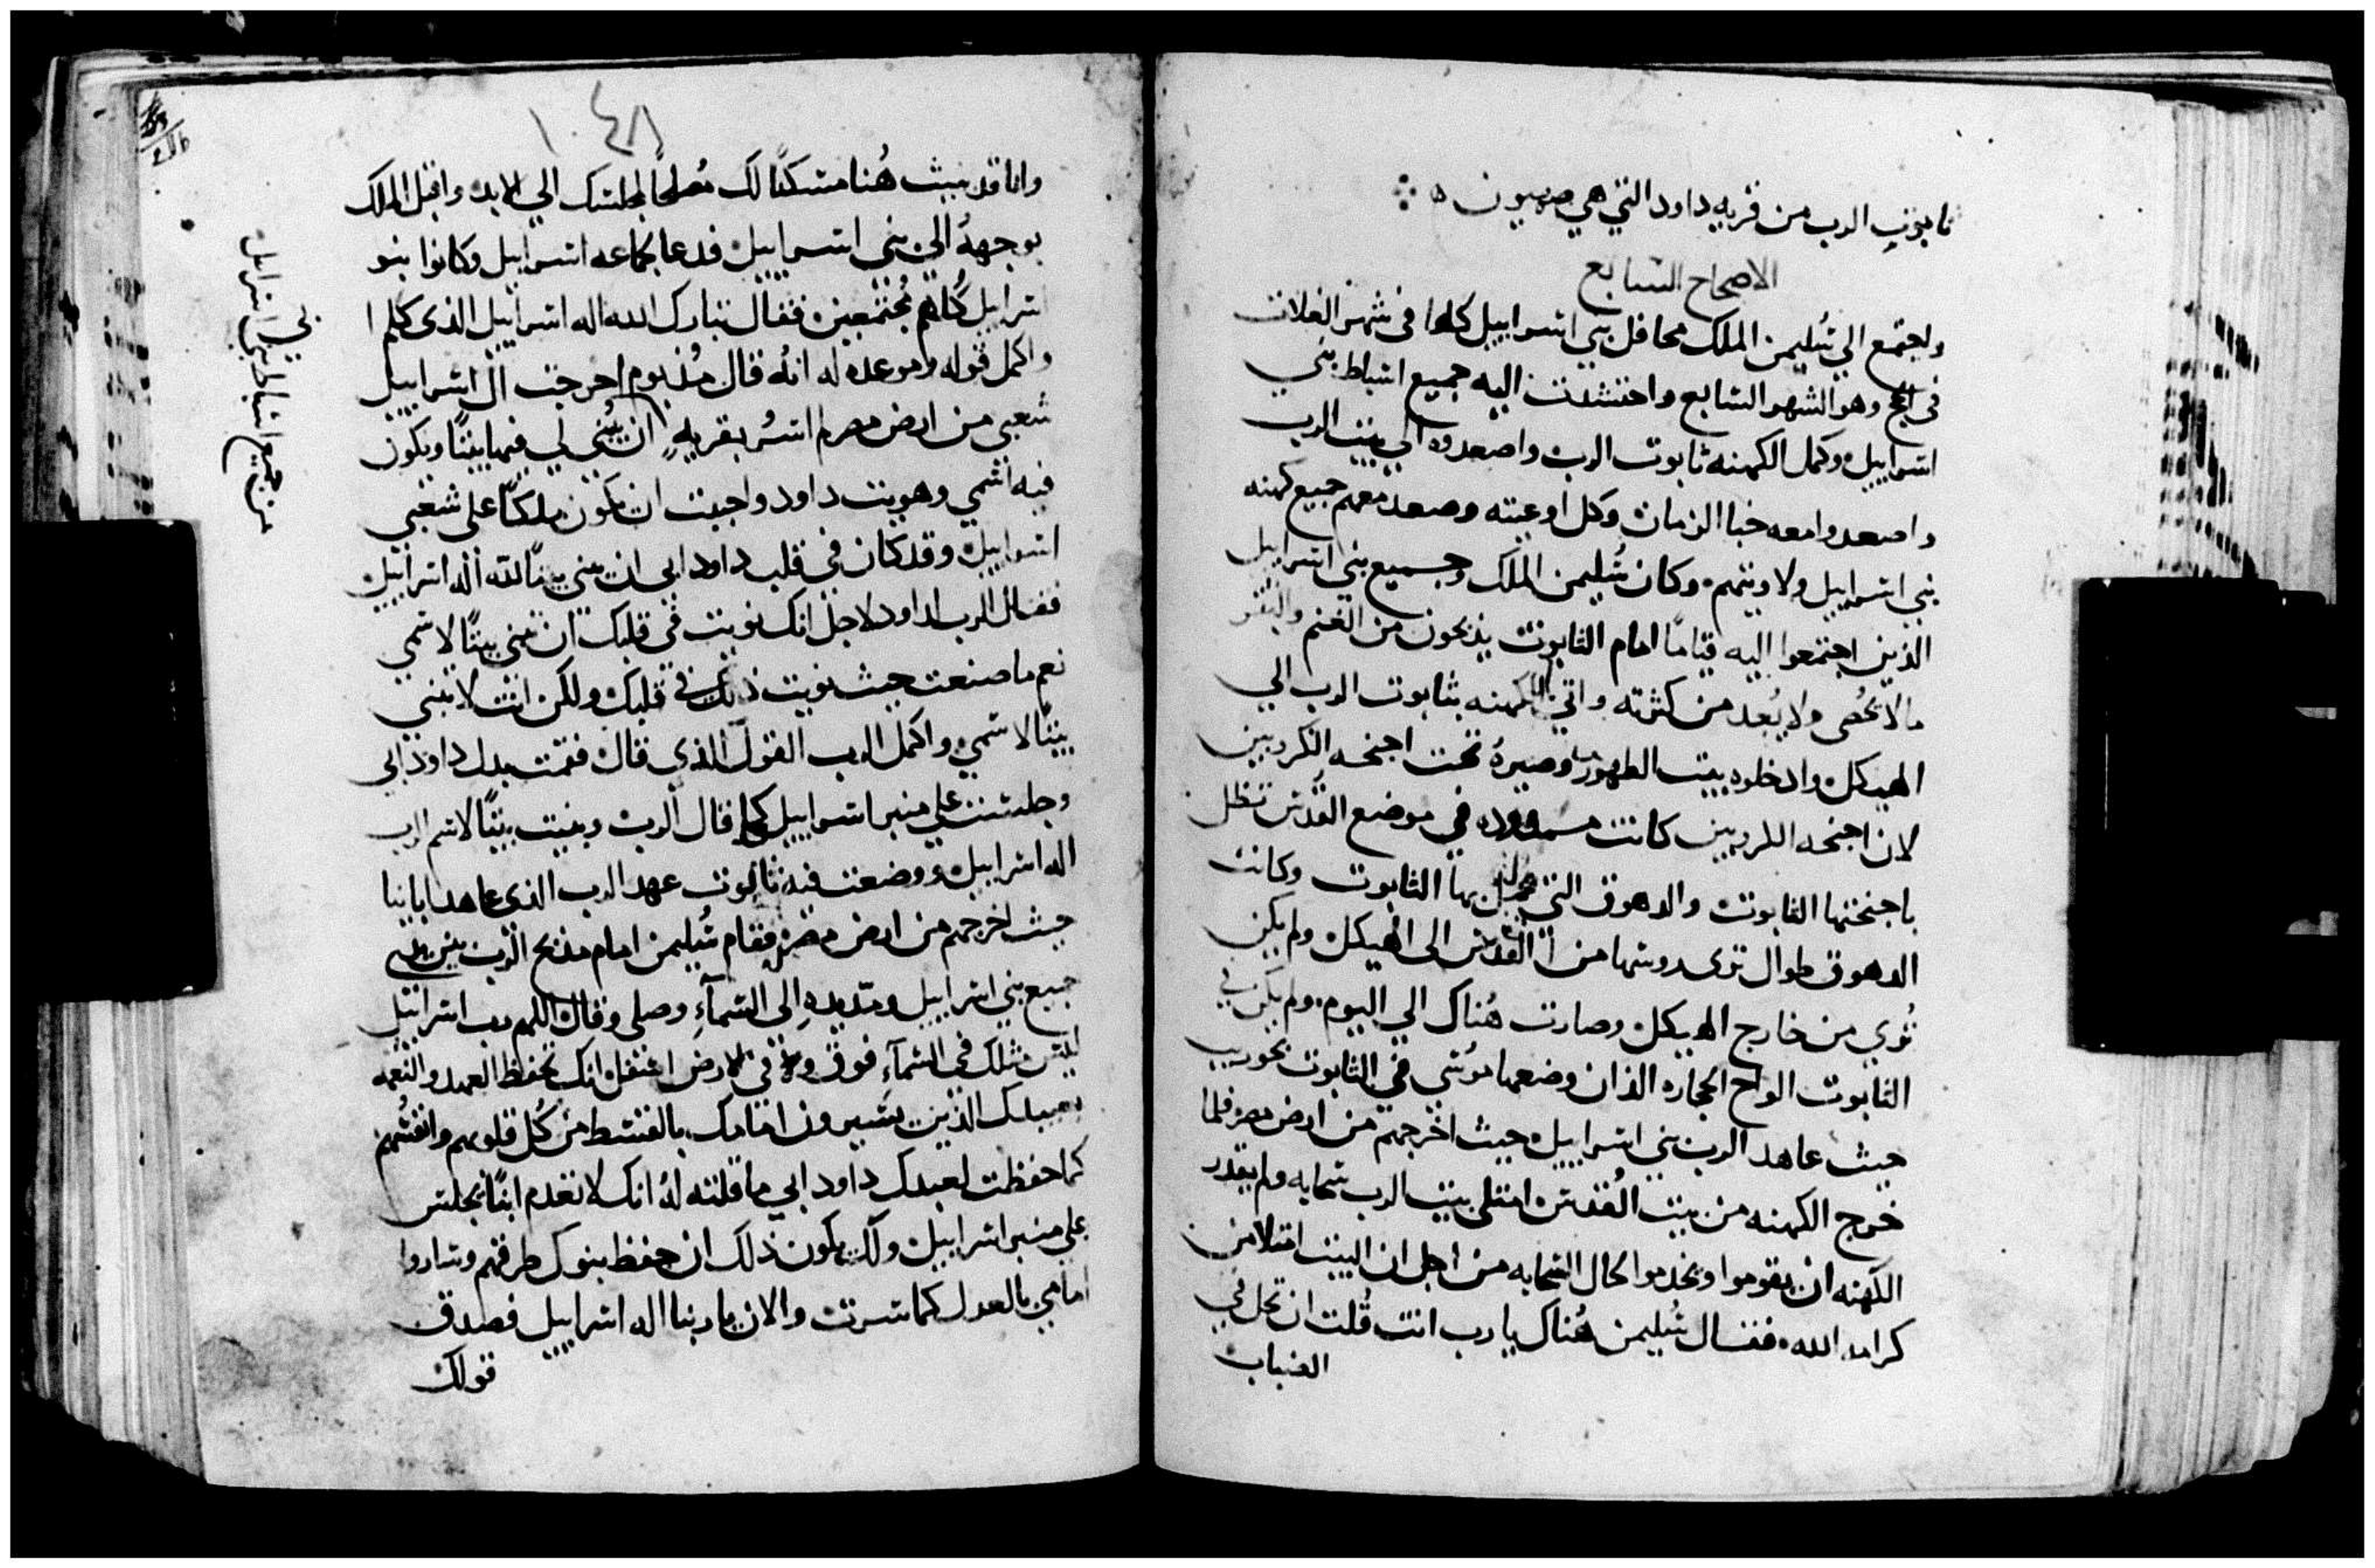 تابوت الرب من قريه داود التي هي صهيون
الاصحاح السابع
واجتمع الي سُليمن الملك محافل بني اسراييل كلها في شهر الغلات
في الحج وهو الشهر السابع واحتشدت اليه جميع اسباط بني
اسراييل وحمل الكهنه تابوت الرب واصعدوه الي بيت الرب
واصعدوا معه خبا الزمان وكل اوعيته وصعد معهم جميع كهنه
بني اسراييل ولاويتهم وكان سُليمن الملك وجميع بني اسراييل
الذين اجتمعوا اليه قيامًا امام التابوت يذبحون من الغنم والبقر
مالا يحُصى ولا يُعد من كثرته واتي الكهنه بتابوت الرب الي
الهيكل وادخلوه بيت الطهور وصيروهُ تحت اجنحه الكروبين
لان اجنحه الكروبين كانت ممدوده في موضع القُدس تظل
باجنحتها التابوت والدهوق التي يحمل بها التابوت وكانت
الدهوق طوال ترى روسها من القدس الى الهيكل ولم يكن
تُري من خارج الهيكل وصارت هُناك الي اليوم ولم يكن في
التابوت الواح الحجاره الذان وضعها موسي في التابوت بحوريب
حيث عاهد الرب بني اسراييل حيث اخرجهم من ارض مصر فلما
خرج الكهنه من بيت القُدس امتلي بيت الرب سحابه ولم يقدر
الكهنه ان يقوموا ويخدموا لحال السحابه من اجل ان البيت امتلا من
كرامه الله فقال سُليمن هُناك يا رب انت قُلت ان تحل في
الضباب
١٠٤٨
وانا قد بنيت هُنا مسكنًا لك مُصلحًا لمجلسك الي الابد واقبل الملك
بوجههُ الي بني اسراييل فدعا لجماعه اسراييل وكانوا بنو
اسراييل كُلهم مُجتمعين فقال تبارك الله اله اسراييل الذي كلم
واكمل قوله وموعده له انهُ قال مُنذ يوم اخرجت ال اسراييل
شعبي من ارض مصر لم اسُر بقريهٍ ان يُبني لي فيها بيتًا ويكون
فيه اسمي وهويت داود واحببت ان يكون ملكًا على شعبي
اسراييل وقد كان في قلب داود ابي ان يبني بيتًا لله اله اسراييل
فقال الرب لداود لاجل انك نويت في قلبك ان تبني بيتًا لاسمي
نعم ما صنعت حيث نويت ذلك في قلبك ولكن انت لا تبني
بيتًا لاسمي واكمل الرب القول الذي قال فقمت بدل داود ابي
وجلست علي منبر اسراييل كما قال الرب وبنيت بيتًا لاسم الرب
اله اسراييل ووضعت فيه تابوت عهد الرب الذي عاهد ابانيا
حيث اخرجهم من ارض مصر فقام سُليمن امام مذبح الرب بين يدي
جميع بني اسراييل ومد يدهِ الى السمآءِ وصلى وقال اللهم رب اسراييل
ليس مثلك في السمآءِ فوق ولا في الارض اسفل انك تحفظ العهد والنعمه
لعبيدك الذين يسيرون امامك بالقسط من كُل قلوبهم وانفسُهم
كما حفظت لعبدك داود ابي ما قلته لهُ انك لا تعدم ابنًا يجلس
علي منبر اسراييل ولك يكون ذلك ان حفظ بنوك طرقهم وساروا
امامي بالعدل كما سرت والان يا ربنا اله اسراييل فصدق
قولك
من جميع اسباط بني اسراييل